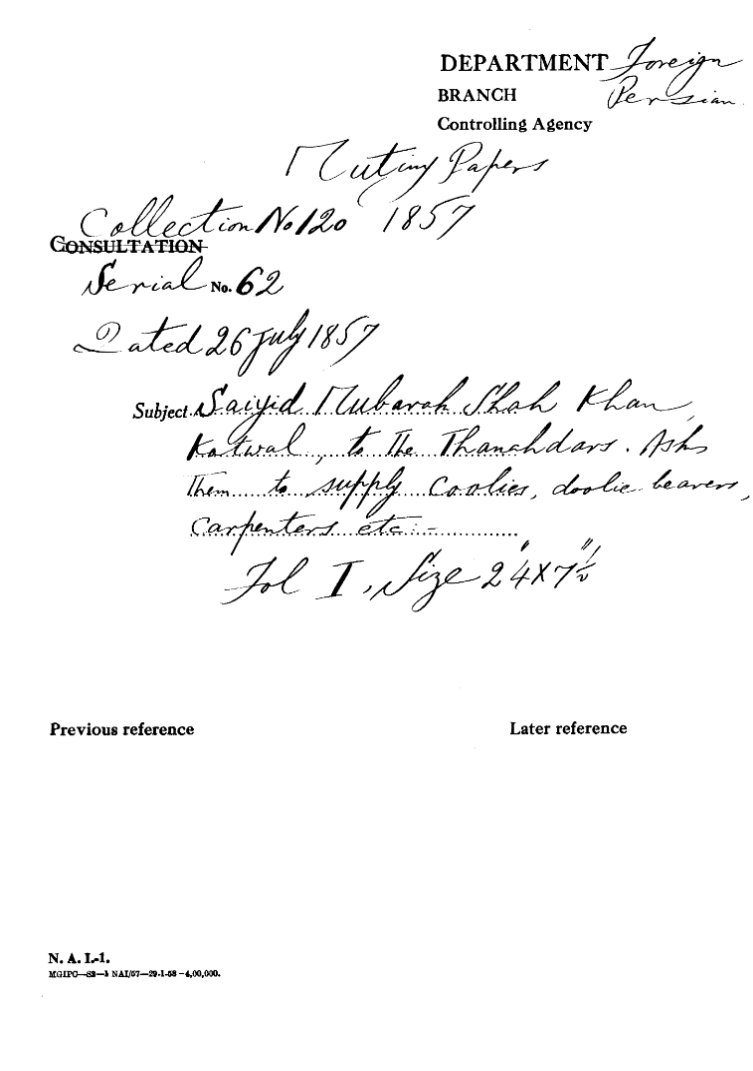 DEPARTMENT Foreign
BRANCH Persian
Controlling Agency
Mutiny Papers
Collection No 120 1857
CONSULTATION
Serial No. 62
Dated 26 July 1857
Subject Saiyid Mubarak Shah Khan,
Kotwal, to the Thanahdars. Asks
them to supply Coolies, doolie bearers,
Carpenters etc:-
Fol I, Size 24"X7"½
Previous reference Later reference
N. A. I.-1.
MGIPC—S2—3 NAI/57—29-1-58—4,00,000.